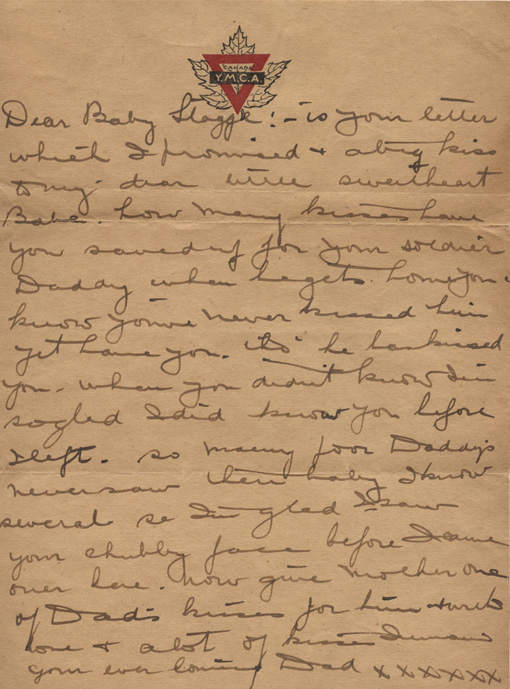 CANADA
Y.M.C.A
Dear Baby :- is your letter
which I promised + a big kiss
to my dear little sweetheart
Babe. how many kisses have
you saved up for your soldier
Daddy when he gets home you
know you've never kissed him
yet have you. tho' he has kissed
you - when you didn't know I'm
so glad I did know you before
I left. so many poor Daddys
never saw their baby I know
several so I'm glad I saw
your chubby face before I came
over here. now give Mother one
of Dad's kisses for him
love + a lot of kisses I
your ever loving Dad xxxxxx